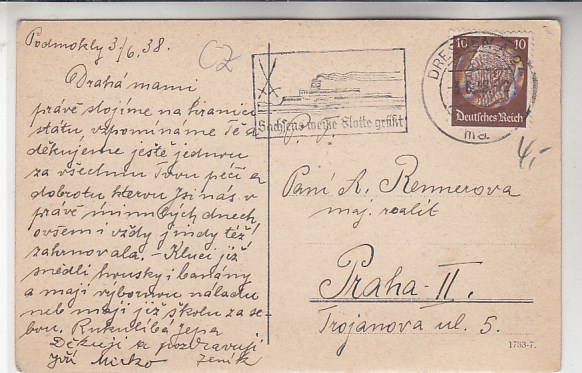 Podmokly 3/6.38.
CZ
Drahá mami
právě stojíme na hranici
státu, vzpomínáme Tě a
děkujeme ještě jednou
za všechnu Tvou péči a
dobrotu kterou Jsi nás v
právě minulých dnech,
ovšem i vždy jindy též
zahrnovala. – Kluci již
snědli housky i banány
a mají výbornou náladu
neb mají již školu za se-
bou. Ruku líbá Jepa
Děkují a pozdravují
Jiří Mirko Zeník
Sachsens weiße Flotte grüßt
DRESDEN
10 10
Deutsches Reich
4,-
Paní A. Rennerova
maj. realit
Praha-II.
Trojanova ul. 5.
1733-7.